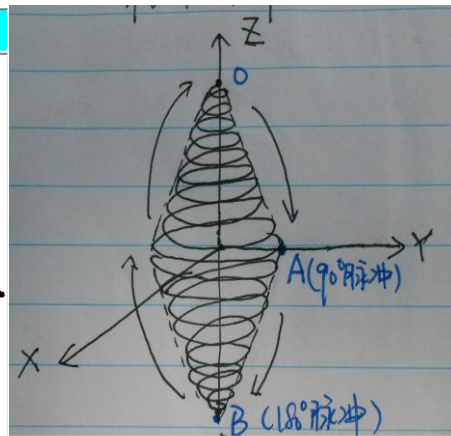 Z
O
Y
A (90°脉冲)
X
B (180°脉冲)